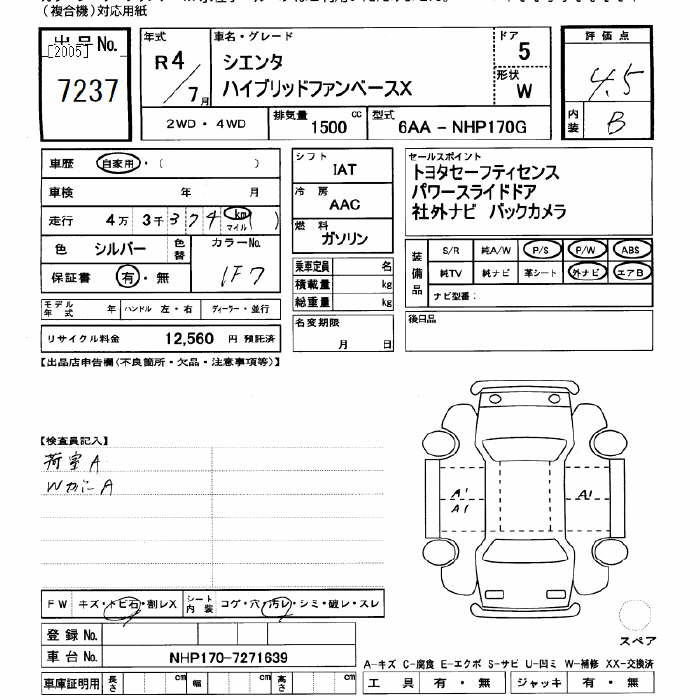 (複合機)対応用紙
出品No.
[2005]
7237
年式
R4/7月
車名・グレード
シエンタ
ハイブリッドファンベースX
ドア
5
形状
W
評価点
4.5
内装
B
2WD・4WD
排気量 1500 cc
型式 6AA-NHP170G
車歴 自家用・( )
車検 年 月
走行 4万3千374km(マイル)
色 シルバー 色替
カラーNo.
1F7
保証書 有・無
モデル年式 年 ハンドル 左・右 ディーラー・並行
リサイクル料金 12,560 円 預託済
シフト
IAT
冷房
AAC
燃料
ガソリン
乗車定員 名
積載量 kg
総重量 kg
名変期限
月 日
セールスポイント
トヨタセーフティセンス
パワースライドドア
社外ナビ バックカメラ
装備品
S/R 純A/W P/S P/W ABS
純TV 純ナビ 革シート 外ナビ エアB
ナビ型番:
後日品
【出品店申告欄(不良箇所・欠品・注意事項等)】
【検査員記入】
荷室A
A1
A1
A1
FW キズ・トビ石・割レX シート内装 コゲ・穴・汚レ・シミ・破レ・スレ
登録No.
車台No. NHP170-7271639
車庫証明用 長さ cm 幅 cm 高さ cm
スペア
A-キズ C-腐食 E-エクボ S-サビ U-凹ミ W-補修 XX-交換済
工具 有・無 ジャッキ 有・無